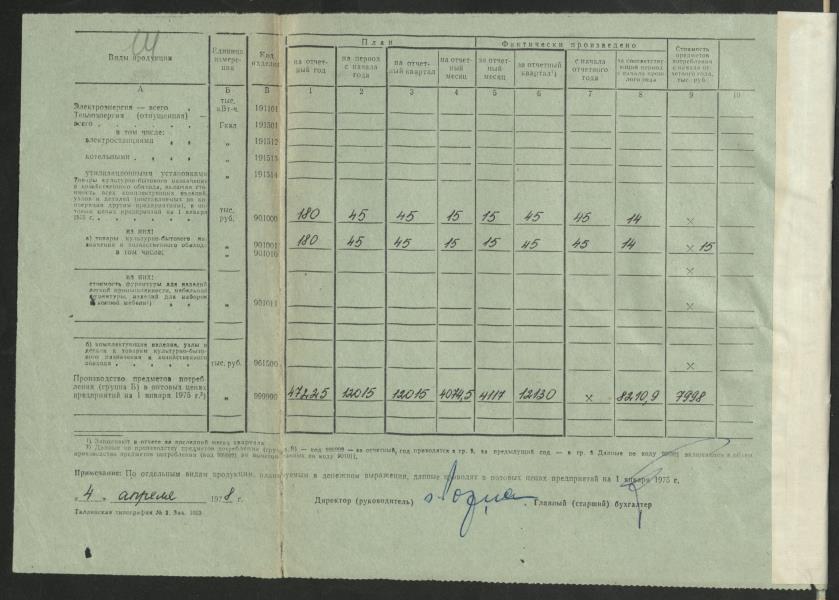 Виды продукции
Единица измере-ния
Код изделия
План
Фактически произведено
Стоимость предметов потребления с начала от-четного года, тыс. руб.
на отчет-ный год
на период с начала года
на отчет-ный квартал
на отчет-ный месяц
за отчет-ный месяц
за отчетный квартал¹)
с начала отчетного года
за соответст-вующий период с начала прош-лого года
А Б В 1 2 3 4 5 6 7 8 9 10
Электроэнергия — всего тыс. кВт-ч 191101
Теплоэнергия (отпущенная) —
всего Гкал 191501
в том числе:
электростанциями „ 191512
котельными „ 191513
утилизационными установками „ 191514
Товары культурно-бытового назначения
и хозяйственного обихода, включая сто-
имость всех комплектующих изделий,
узлов и деталей (поставляемых по ко-
операции другим предприятиям), в оп-
товых ценах предприятий на 1 января
1975 г. тыс. руб. 901000 180 45 45 15 15 45 45 14 ×
из них:
а) товары культурно-бытового на-
значения и хозяйственного обихода „ 901001 180 45 45 15 15 45 45 14 × 15
в том числе: „ 901010
×
из них:
стоимость фурнитуры для изделий
легкой промышленности, мебельной
фурнитуры, изделий для наборов
кухонной мебели¹) „ 901011 ×
б) комплектующие изделия, узлы и
детали к товарам культурно-быто-
вого назначения и хозяйственного
обихода тыс. руб. 961500 ×
Производство предметов потреб-
ления (группа Б) в оптовых ценах
предприятий на 1 января 1975 г.²) „ 999999 47225 12015 12015 4074,5 4117 12130 × 8210,9 7998
¹) Заполняют в отчете за последний месяц квартала
²) Данные по производству предметов потребления (группа Б) — код 999999 — за отчетный год приводятся в гр. 9, за предыдущий год — в гр.
Примечание: По отдельным видам продукции, планируемым в денежном выражении, данные приводят в оптовых ценах предприятий на 1 января 1975 г.
„4„ апреля 1978 г.
Директор (руководитель)
Главный (старший) бухгалтер
Таллинская типография № 2. Зак.